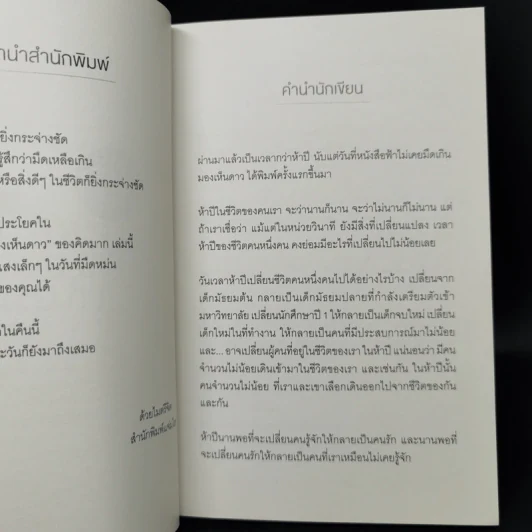 นำสำนักพิมพ์
ยิ่งกระจ่างชัด
รู้สึกว่ามืดเหลือเกิน
หรือสิ่งดีๆ ในชีวิตก็ยิ่งกระจ่างชัด
ประโยคใน
งเห็นดาว" ของคิดมาก เล่มนี้
แสงเล็กๆ ในวันที่มืดหม่น
ของคุณได้
ในคืนนี้
ะวันก็ยังมาถึงเสมอ
ด้วยไมตรีจิต
สำนักพิมพ์
คำนำนักเขียน
ผ่านมาแล้วเป็นเวลากว่าห้าปี นับแต่วันที่หนังสือฟ้าไม่เคยมืดเกิน
มองเห็นดาว ได้พิมพ์ครั้งแรกขึ้นมา
ห้าปีในชีวิตของคนเรา จะว่านานก็นาน จะว่าไม่นานก็ไม่นาน แต่
ถ้าเราเชื่อว่า แม้แต่ในหน่วยวินาที ยังมีสิ่งที่เปลี่ยนแปลง เวลา
ห้าปีของชีวิตคนหนึ่งคน คงย่อมมีอะไรที่เปลี่ยนไปไม่น้อยเลย
วันเวลาห้าปีเปลี่ยนชีวิตคนหนึ่งคนไปได้อย่างไรบ้าง เปลี่ยนจาก
เด็กมัธยมต้น กลายเป็นเด็กมัธยมปลายที่กำลังเตรียมตัวเข้า
มหาวิทยาลัย เปลี่ยนนักศึกษาปี 1 ให้กลายเป็นเด็กจบใหม่ เปลี่ยน
เด็กใหม่ในที่ทำงาน ให้กลายเป็นคนที่มีประสบการณ์มาไม่น้อย
และ... อาจเปลี่ยนผู้คนที่อยู่ในชีวิตของเรา ในห้าปี แน่นอนว่า มีคน
จำนวนไม่น้อยเดินเข้ามาในชีวิตของเรา และเช่นกัน ในห้าปีนั้น
คนจำนวนไม่น้อย ที่เราและเขาเลือกเดินออกไปจากชีวิตของกัน
และกัน
ห้าปีนานพอที่จะเปลี่ยนคนรู้จักให้กลายเป็นคนรัก และนานพอที่
จะเปลี่ยนคนรักให้กลายเป็นคนที่เราเหมือนไม่เคยรู้จัก